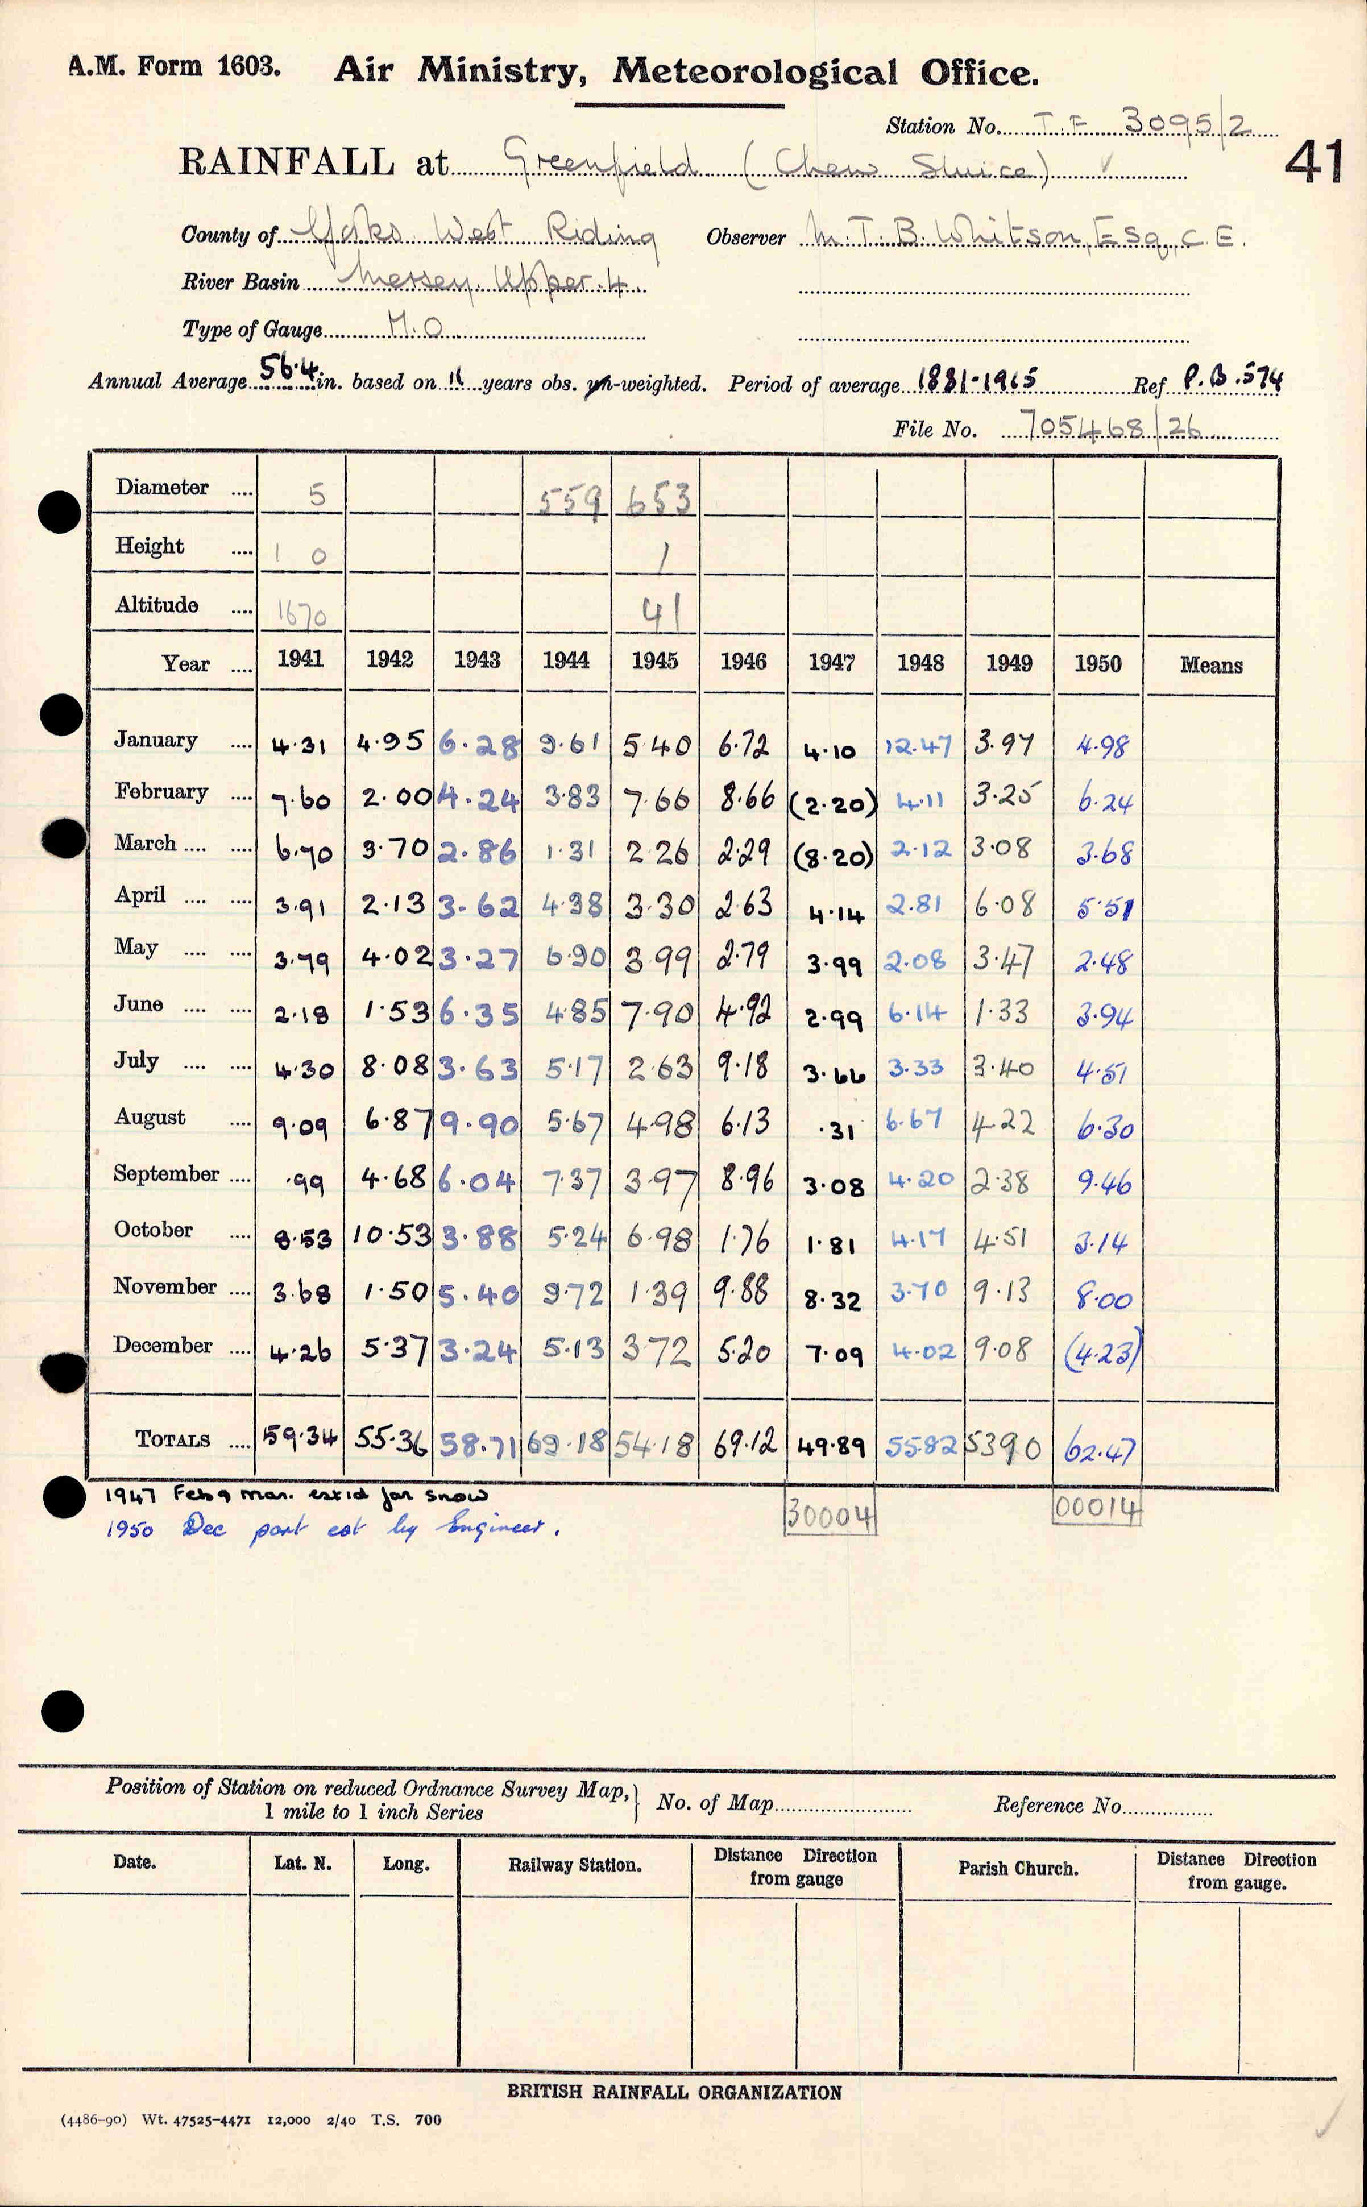 A.M. Form 1603. Air Ministry, Meteorological Office.
Station No. T.F 3095/2
RAINFALL at Greenfield (Chew Sluice) ✓
41
County of Yorks West Riding Observer M.T.B. Whitson, Esq, C.E.
River Basin Mersey. Upper. 4.
Type of Gauge M.O
Annual Average 56.4 in. based on 11 years obs. un-weighted. Period of average 1881-1915 Ref P.B.574
File No. 705468/26
Diameter 5 559 653
Height 1 0 1
Altitude 1670 41
Year 1941 1942 1943 1944 1945 1946 1947 1948 1949 1950 Means
January 4.31 4.95 6.28 9.61 5.40 6.72 4.10 12.47 3.97 4.98
February 7.60 2.00 4.24 3.83 7.66 8.66 (2.20) 4.11 3.25 6.24
March 6.70 3.70 2.86 1.31 2.26 2.29 (8.20) 2.12 3.08 3.68
April 3.91 2.13 3.62 4.38 3.30 2.63 4.14 2.81 6.08 5.51
May 3.79 4.02 3.27 6.90 3.99 2.79 3.99 2.08 3.47 2.48
June 2.18 1.53 6.35 4.85 7.90 4.92 2.99 6.14 1.33 3.94
July 4.30 8.08 3.63 5.17 2.63 9.18 3.66 3.33 3.40 4.51
August 9.09 6.87 9.90 5.67 4.98 6.13 .31 6.67 4.22 6.30
September .99 4.68 6.04 7.37 3.97 8.96 3.08 4.20 2.38 9.46
October 8.53 10.53 3.88 5.24 6.98 1.76 1.81 4.17 4.51 3.14
November 3.68 1.50 5.40 9.72 1.39 9.88 8.32 3.70 9.13 8.00
December 4.26 5.37 3.24 5.13 3.72 5.20 7.09 4.02 9.08 (4.23)
TOTALS 59.34 55.36 58.71 69.18 54.18 69.12 49.89 55.82 53.90 62.47
1947 Feb & Mar. est'd for snow
30004 00014
1950 Dec part est by Engineer.
Position of Station on reduced Ordnance Survey Map, 1 mile to 1 inch Series } No. of Map Reference No.
Date. Lat. N. Long. Railway Station. Distance Direction from gauge Parish Church. Distance Direction from gauge.
BRITISH RAINFALL ORGANIZATION
(4486-90) Wt. 47525-4471 12,000 2/40 T.S. 700